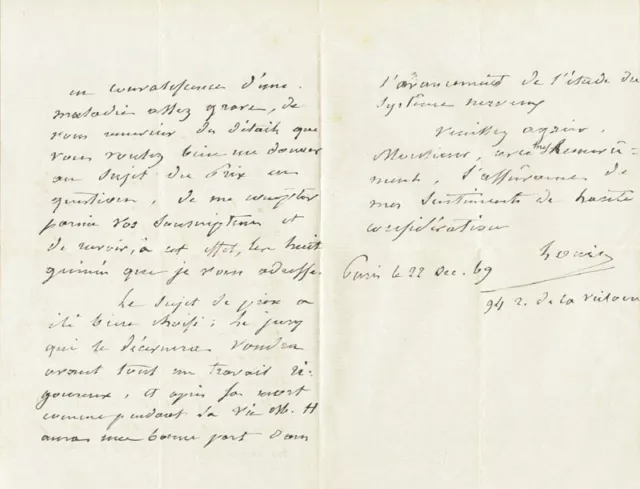 en convalescence d'une
maladie assez grave, de
vous remercier des détails que
vous voulez bien me donner
au sujet du Prix en
question, de me compter
parmi vos souscripteurs et
de recevoir, à cet effet, les huit
guinées que je vous adresse.
Le sujet de prix a
été bien choisi; le jury
qui le décernera voudra
avant tout un travail ri-
goureux, et après sa mort
comme pendant sa vie M. H
aura une bonne part dans
l'avancement de l'étude du
système nerveux
Veuillez agréer,
Monsieur, avec mes remercie-
ments, l'assurance de
mes sentiments de haute
considération
Paris le 22 Dec. 69
94 r. de la